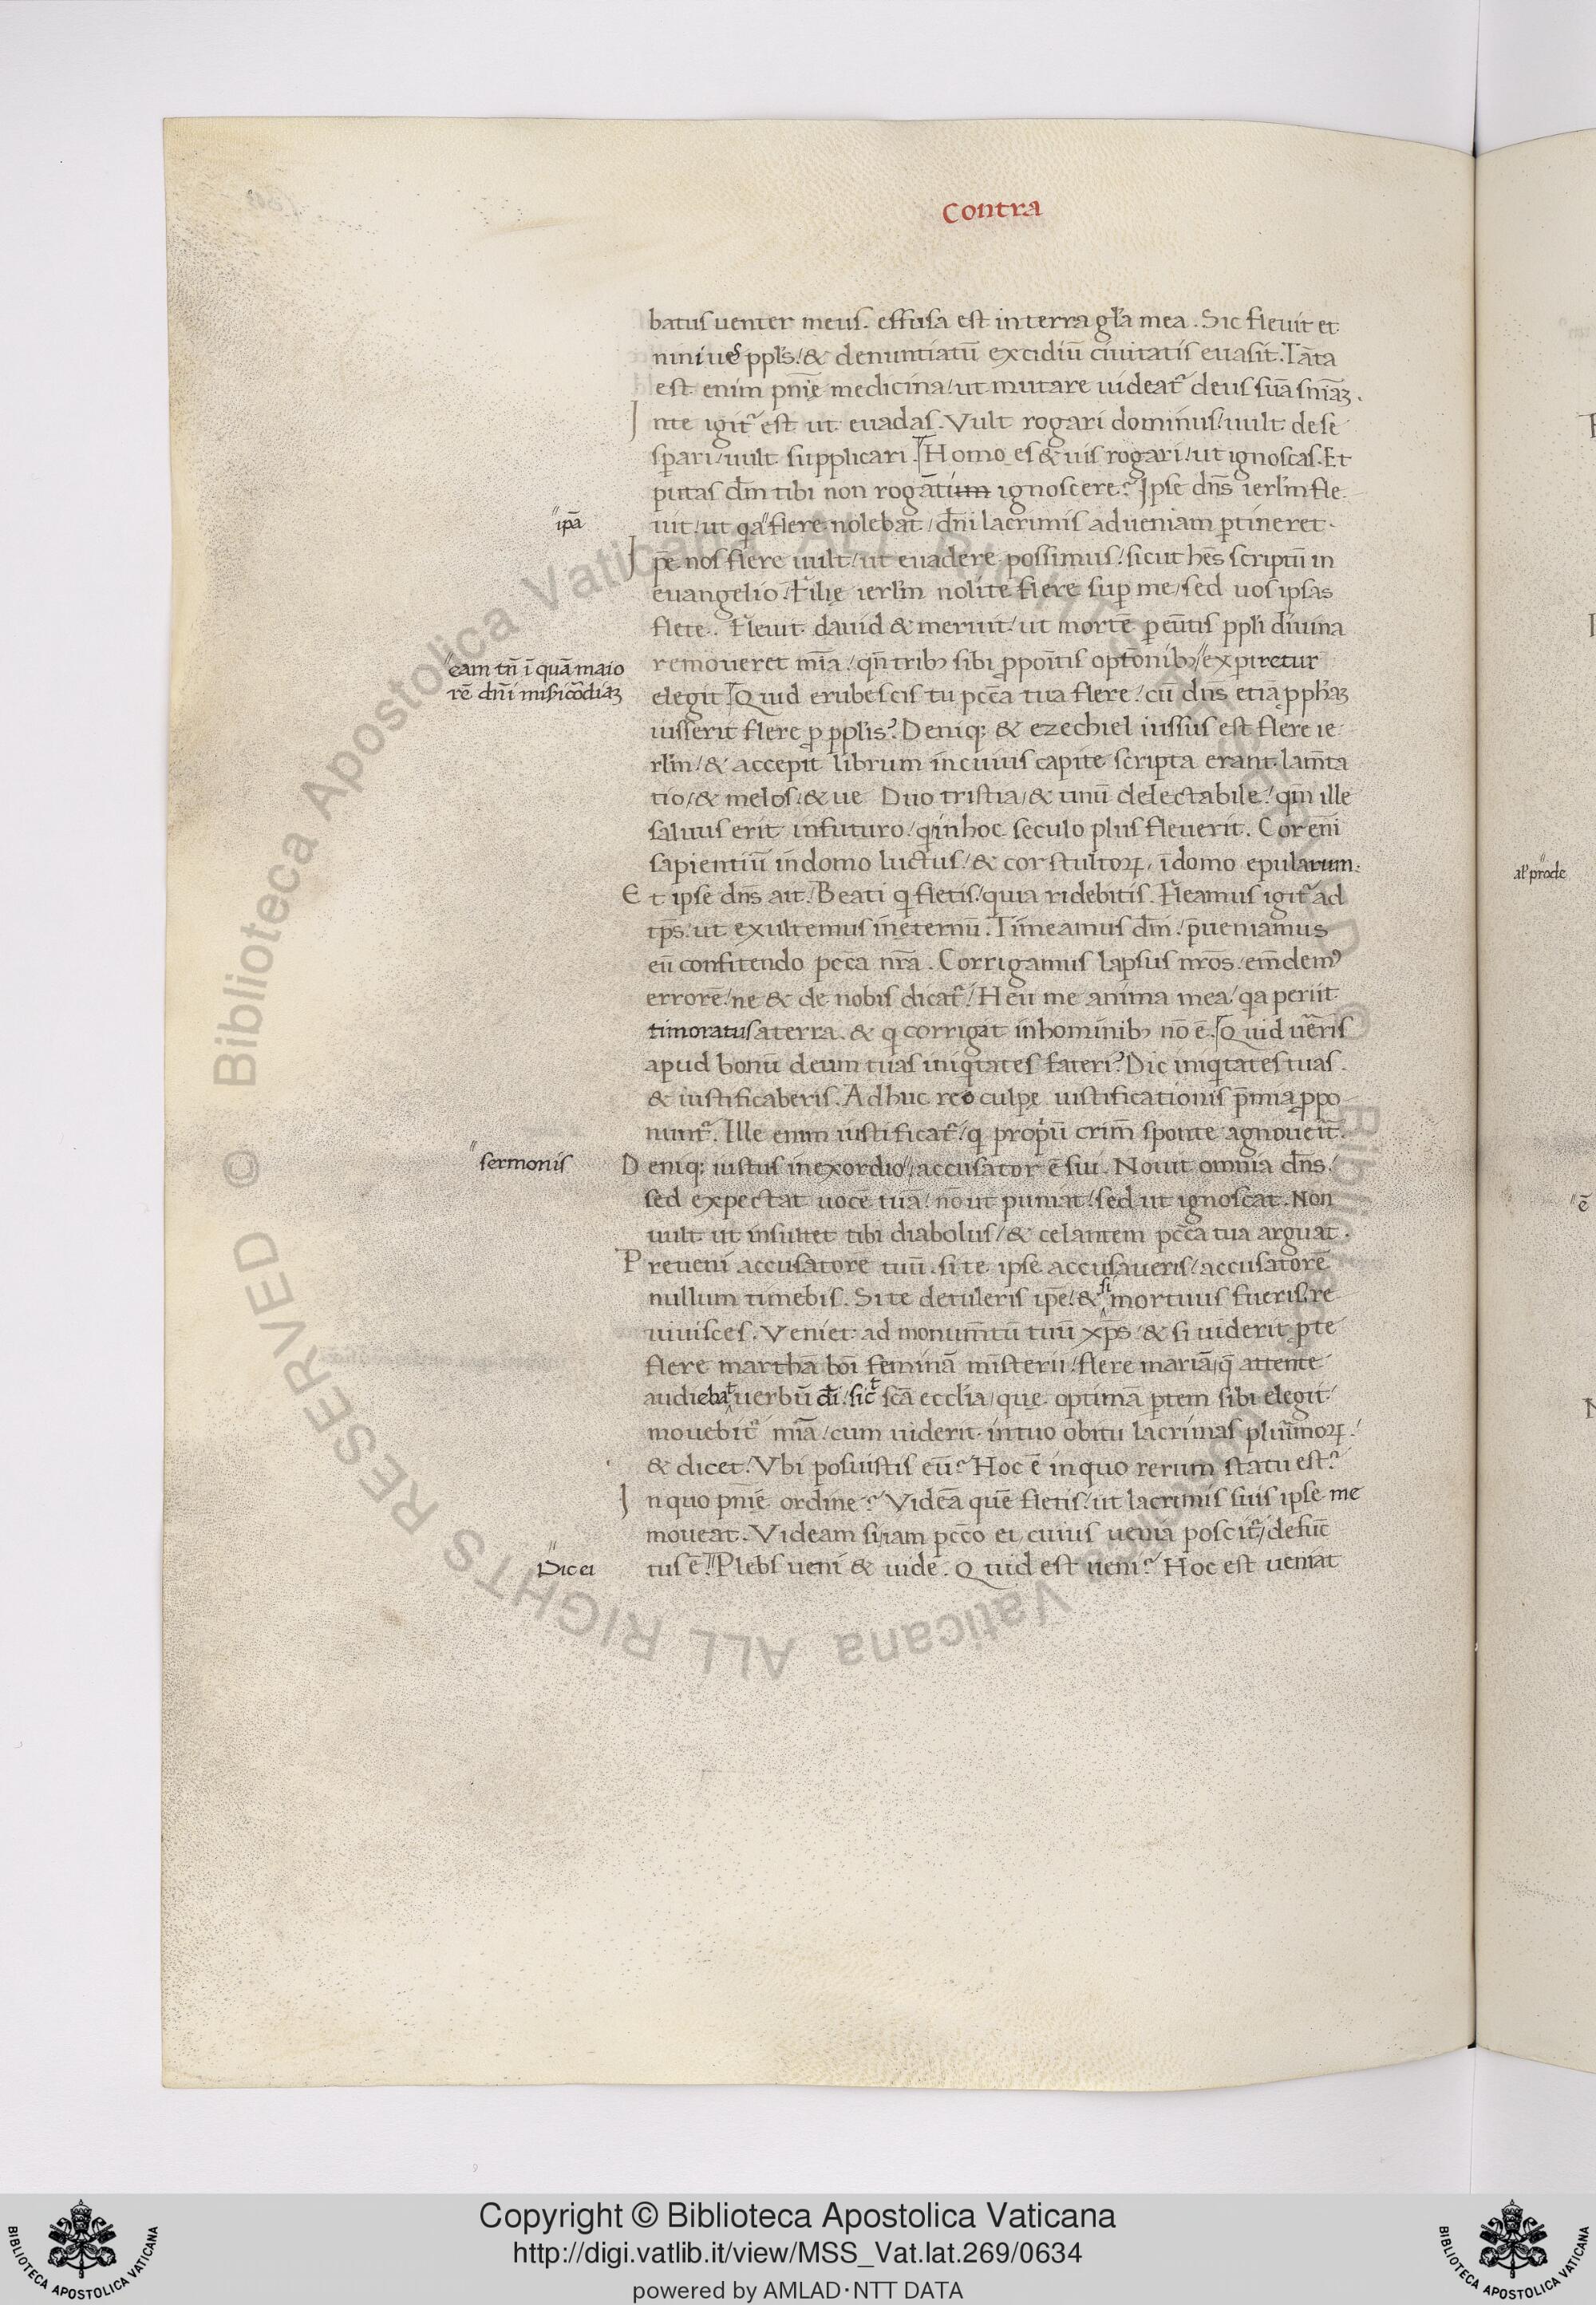 Contra
batus uenter meus. effusa est in terra gła mea. Sic fleuit et
niniue ppłs/ & denuntiatū excidiū ciuitatis euasit. Tāta
est enim pnīę medicina/ ut mutare uideat᷑ deus suā snīaꝫ.
Inte igit᷑ est ut euadas. Vult rogari dominus/ uult de se
sꝑari/ uult supplicari. Homo es & uis rogari/ ut ignoscas. Et
putas dm̄ tibi non rogātum ignoscere? Ipse dns̄ ierłm fle
uit/ ut qa flere nolebat/ dn̄i lacrimis ad ueniam ꝑtineret.
ipā
Ipē nos flere uult/ ut euadere possimus/ sicut hēs scriptū in
euangelio/ Filię ierłm nolite flere suꝑ me/ sed uos ipsas
flete. Fleuit dauid & meruit/ ut mortē ꝑeūtis ppłi diuina
remoueret mīa/ qn̄ tribꝫ sibi ꝓpoītis optōnibꝫ/ expiretur
eam tn̄ ī quā maio
rē dn̄i misicōdiaꝫ
elegit. Quid erubescis tu pcc̄a tua flere/ cū dns̄ etiā ꝓphaꝫ
iusserit flere ꝓ ppłis? Deniqꝫ & ezechiel iussus est flere ie
rłm/ & accepit librum in cuius capite scripta erant lam̄ta
tio/ & melos/ & ue Duo tristia/ & unū delectabile/ qm̄ ille
saluus erit in futuro/ q in hoc seculo plus fleuerit. Cor enī
sapientiū in domo luctus/ & cor stultoꝝ ī domo epularum.
Et ipse dns̄ ait/ Beati q fletis/ quia ridebitis. Fleamus igit᷑ ad
tps̄/ ut exultemus in eternū. Timeamus dm̄/ p̄ueniamus
eū confitendo pcc̄a nrā. Corrigamus lapsus nrōs/ em̄demꝰ
errorē/ ne & de nobis dicat᷑/ Heu me anima mea/ qa periit
timoratus a terra & q corrigat in hominibꝫ nō ē. Quid uēris
apud bonū deum tuas iniqtates fateri? Dic iniqtates tuas
& iustificaberis. Adhuc reo culpę iustificationis p̄mia ꝓpo
nunt᷑. Ille enim iustificat᷑/ q propiū crim̄ sponte agnoueit.
Deniqꝫ iustus in exordio/ accusator ē sui. Nouit omnia dns̄/
sermonis
sed expectat uocē tuā/ nō ut puniat/ sed ut ignoscat. Non
uult ut insultet tibi diabolus/ & celantem pcc̄a tua arguat.
Preueni accusatorē tuū. si te ipse accusaueris/ accusatorē
nullum timebis. Si te detuleris ipē/ & si mortuus fueris/ re
uiuisces. Veniet ad monum̄tū tuū xps̄/ & si uiderit ꝑ te
flere marthā boī feminā misterii/ flere mariā/ q̄ attente
audiebat uerbū di/ sict scā ecclia/ quę optimā ꝑtem sibi elegit
mouebit᷑ mīa/ cum uiderit in tuo obitu lacrimas pluimoꝝ/
& dicet/ Vbi posuistis eū? Hoc ē in quo rerum statu est?
In quo pnīę ordine? Videā quē fletis/ ut lacrimis suis ipse me
moueat. Videam si iam pccō ei/ cuius uenia poscit᷑/ defuc̄
tus ē/ Plebs ueni & uide. Quid est ueni? Hoc est ueniat
Dic ei
ał prode
ē
Copyright © Biblioteca Apostolica Vaticana
http://digi.vatlib.it/view/MSS_Vat.lat.269/0634
powered by AMLAD·NTT DATA
BIBLIOTECA APOSTOLICA VATICANA
BIBLIOTECA APOSTOLICA VATICANA
© Biblioteca Apostolica Vaticana ALL RIGHTS RESERVED © Biblioteca Apostolica Vaticana ALL RIGHTS RESERVED